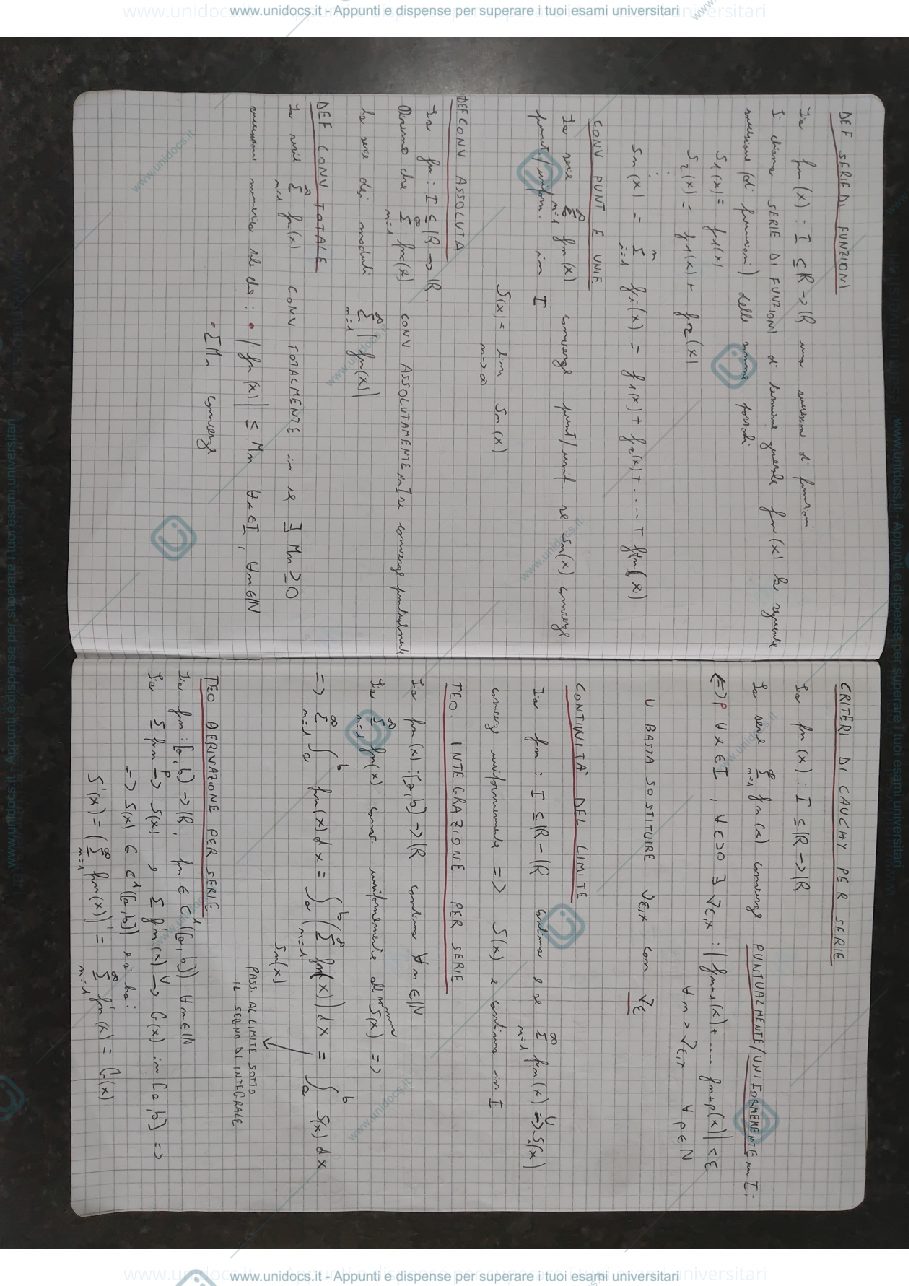 www.unidocs.it - Appunti e dispense per superare i tuoi esami universitari
DEF SERIE DI FUNZIONI
Sia fn(x) : I ⊆ IR → IR una successione di funzioni
Si chiama SERIE DI FUNZIONI di termine generale fn(x) la seguente
successione (di funzioni) delle somme parziali
S1(x) = f1(x)
S2(x) = f1(x) + f2(x)
⋮
Sn(x) = Σ fi(x) = f1(x) + f2(x) + .... + fn(x)
CONV PUNT E UNIF
La serie Σ fn(x) converge punt/unif se Sn(x) converge
punt/uniform. in I
S(x) = lim n→∞ Sn(x)
DEF CONV ASSOLUTA
Sia fn : I ⊆ IR → IR
Diremo che Σ fn(x) CONV ASSOLUTAMENTE in I se converge
la serie dei moduli Σ |fn(x)|
DEF CONV TOTALE
La serie Σ fn(x) CONV TOTALMENTE in se ∃ Mn ≥ 0
successione numerica tale che : • |fn(x)| ≤ Mn ∀x∈I, ∀n∈IN
• Σ Mn converge
CRITERI DI CAUCHY PER SERIE
Sia fn(x) : I ⊆ IR → IR
La serie Σ fn(x) converge PUNTUALMENTE/UNIFORMEMENTE in I :
<=> P ∀x∈I, ∀ε>0 ∃ νε,x : |fn+1(x) + .... fn+p(x)| < ε
∀n > νε,x ∀p∈N
U BASTA SOSTITUIRE νε,x con νε
CONTINITÀ DEL LIMITE
Sia fn : I ⊆ IR → IR continue e se Σ fn(x) → S(x)
converge uniformemente => S(x) è continua in I
TEO. INTEGRAZIONE PER SERIE
Sia fn(x) : [a,b] → IR continue ∀n∈IN
Sia Σ fn(x) conv uniformemente S(x) =>
=> Σ ∫ fn(x)dx = ∫ (Σ fn(x))dx = ∫ S(x)dx
Sn(x)
PASS. AL LIMITE SOTTO
IL SEGNO DI INTEGRALE
TEO DERIVAZIONE PER SERIE
Sia fn : [a,b] → IR, fn ∈ C¹([a,b]) ∀n∈IN
Se Σ fn →P S(x), e Σ f'n(x) →U G(x) in [a,b] =>
=> S(x) ∈ C¹([a,b]) e si ha:
S'(x) = (Σ fn(x))' = Σ f'n(x) = G(x)
www.unidocs.it - Appunti e dispense per superare i tuoi esami universitari